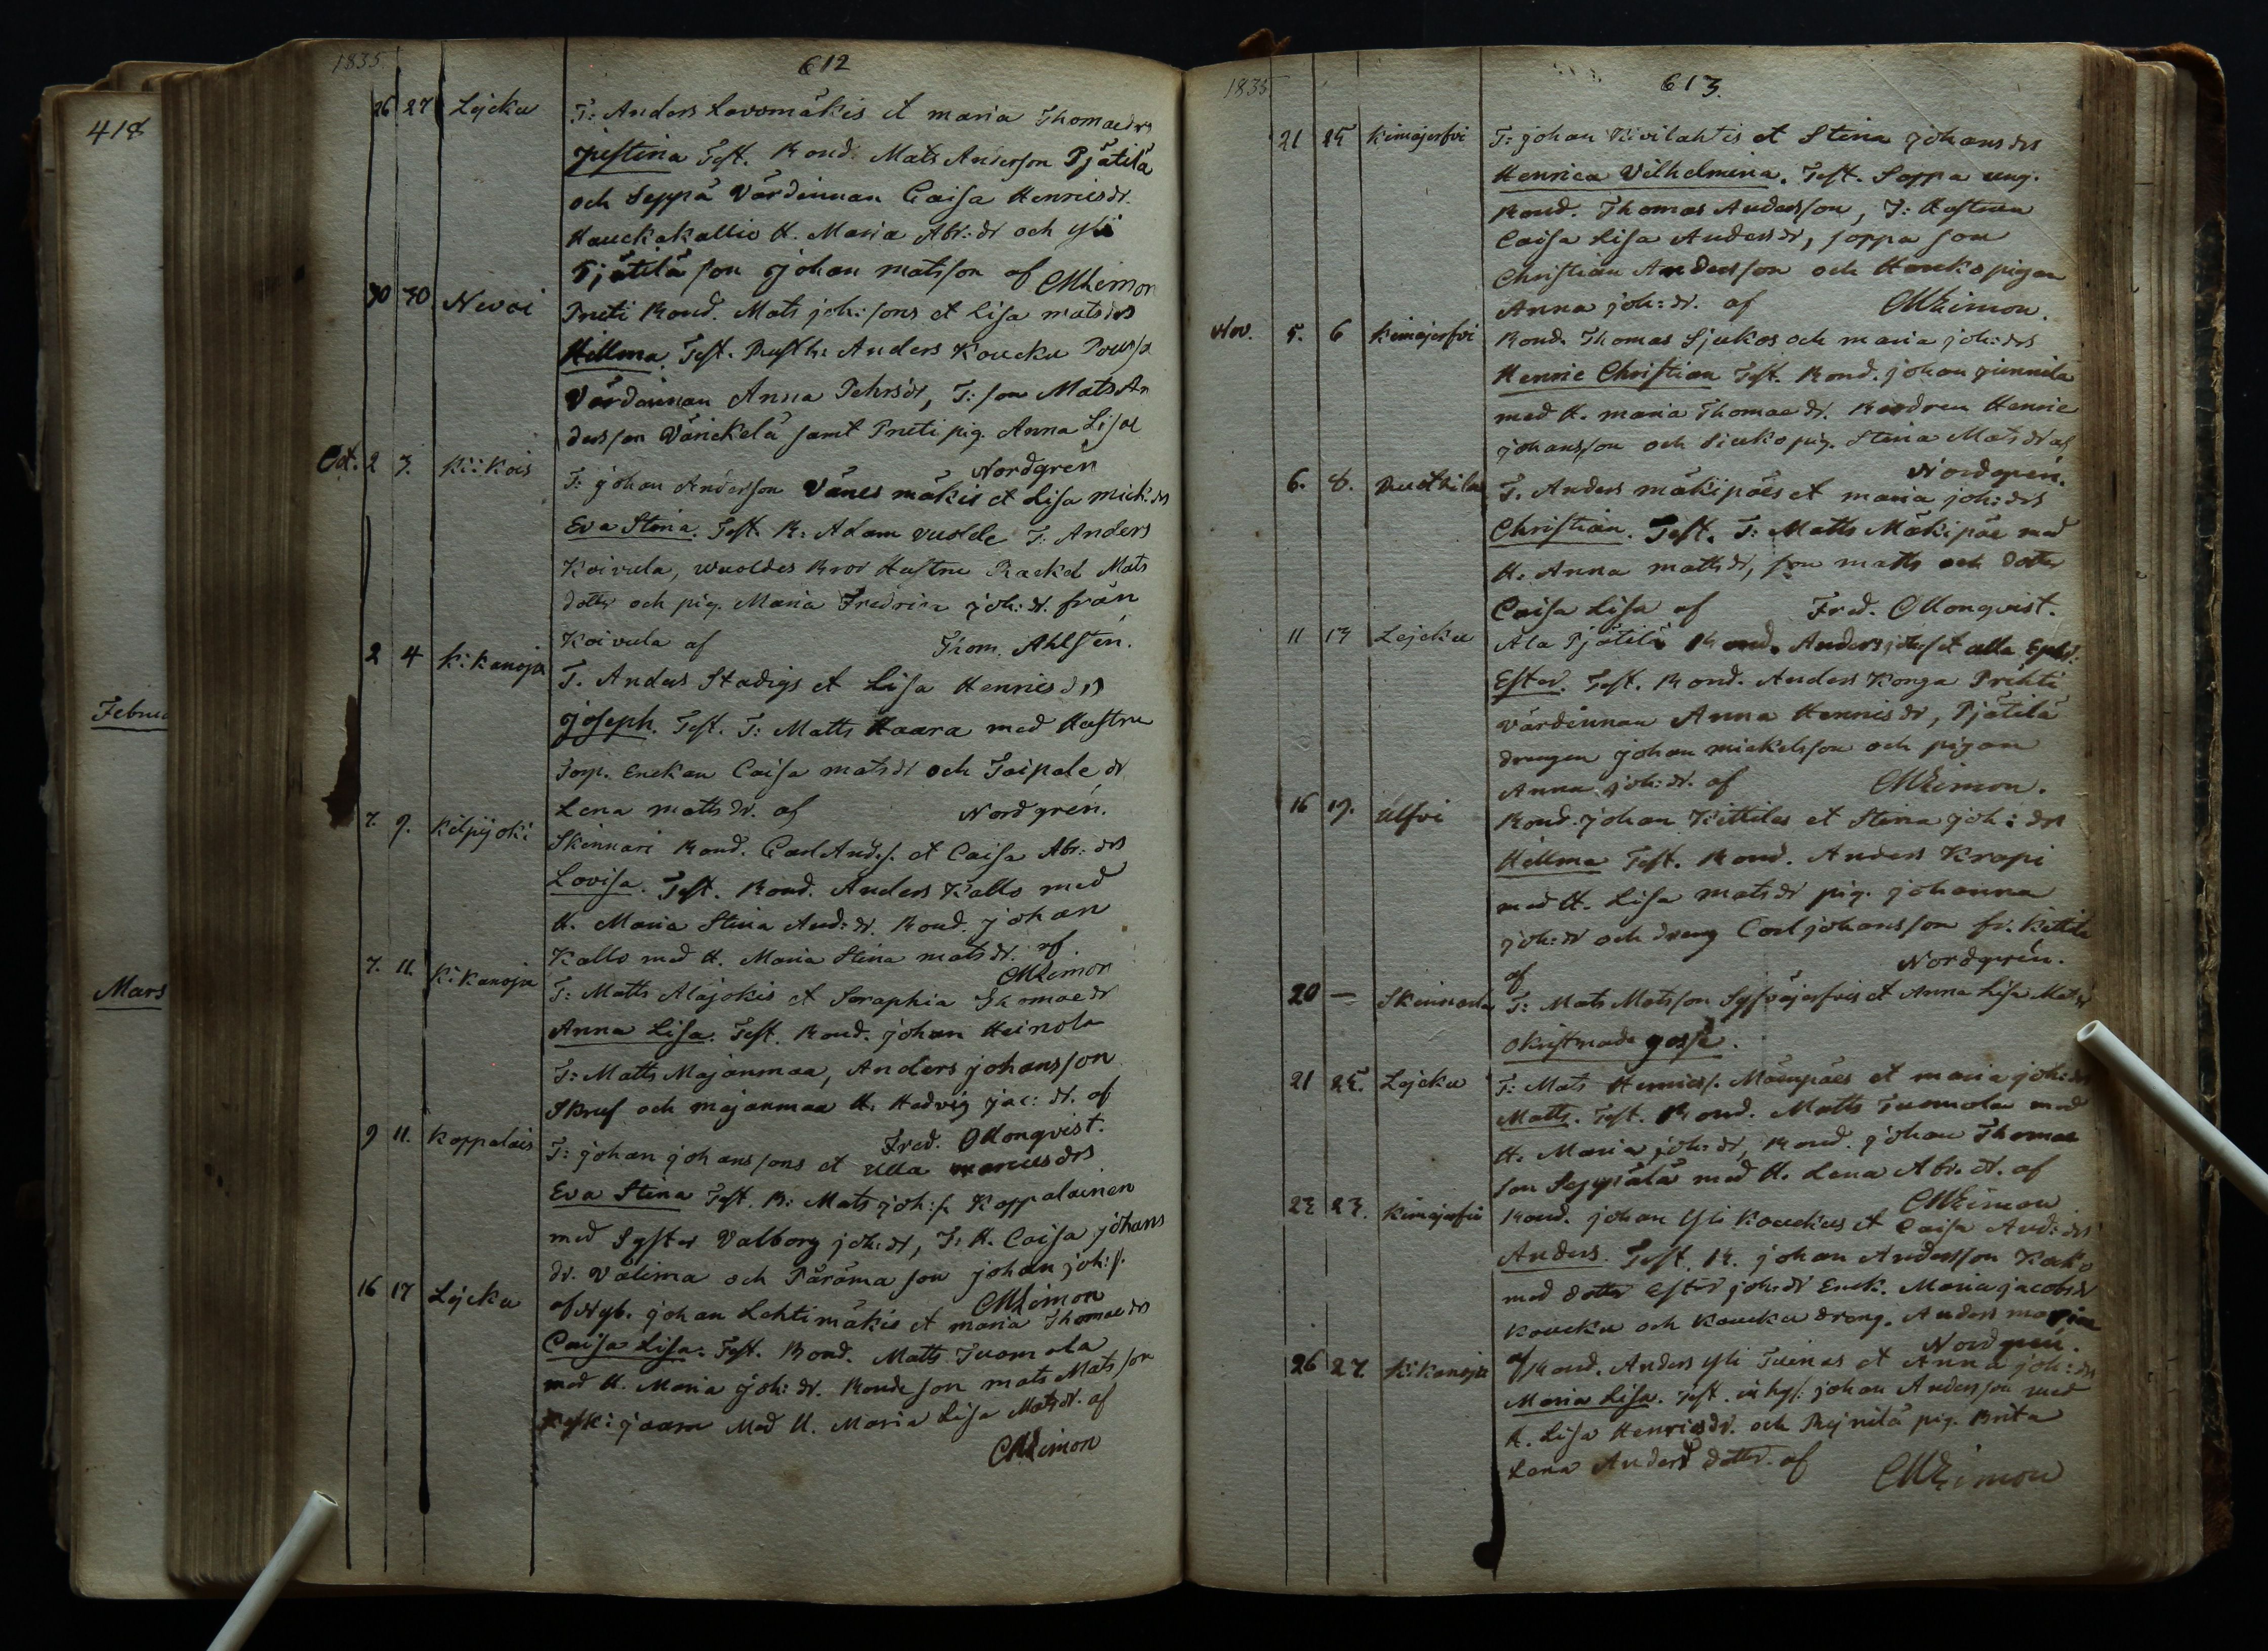 418
Februa
Mars
1835
612
26 27 Lejcku T: Anders Lavsmäkis et maria Thomaedrs
justina Test. Bond. Mats Anderson Pjätilä
och Seppä Värdinnan Caisa Henricsdr.
Hauckakallio H. Maria Abr:dr och yli
Pjätilä son johan matsson af CMLimon
30 30 Nevoi Preti Bond. Mats joh:sons et Lisa matsdrs
Hellma. Test. Rusth: Anders Koucku Pouspa
Värdinnan Anna Pehrsdr, T: son Mats An
dersson Vänickelä samt Preti pig. Anna Lisa
Nordgrén
Oct. 2 3. K:Kois T: johan Anderson Vänesmäkis et Lisa mick:drs
Eva Stina. Test. B: Adam vuolde T: Anders
Koivula, wuoldes Bror Hustru Rackel Mats
dotter och pig. Maria Fredrica joh:dr. från
Koivula af Thom. Ahlstén.
2 4 K:Kanoja T. Anders Stadigs et Lisa Henricsdrs
joseph. Test. T: Matts Haara med Hustru
Torp. Enckan Caisa matsdr och Taipale dr
Lena matts dr. af Nordgrén.
7. 9. Kilpijoki Skinnari Bond. Carl Ands. et Caisa Abr:drs
Lovisa. Test. Bond. Anders Kallo med
H. Maria Stina And:dr. Bond. johan
Kallo med H. Maria Stina matsdr. af
CMLimon
7. 11. K:Kanoja T: Matts Alajokis et Seraphia Thomaedr
Anna Lisa. Test. Bond. johan Heinola
T: Matts Majanmaa, Anders johansson
Skruf och majanmaa H. Hedvig jac:dr. af
Fred. OMonqvist.
9 11. Koppalais T: johan johanssons et Ulla marcusdrs
Eva Stina Test. B: Mats joh:s. Koppalainen
med Syster Valborg joh:dr, T: H. Caisa johans
dr. Välima och Päräma son johan joh:s.
af CMLimon
16 17 Lejcku Nyb. johan Lehtimäkis et maria Thomaedrs
Caisa Lisa. Test. Bond. Matts Tuomola
med H. Maria joh:dr. Bonde son mats Matsson
Keskijaara Med H. Maria Lisa Matsdr. af
CMLimon
1835
613.
21 25 Kimajerfvi T: johan Kivilahtis et Stina johansdrs
Henrica Vilhelmina. Test. Soppa ung.
Bond. Thomas Andersson, T: Hustrun
Caisa Lisa Andersdr, soppa son
Christian Andersson och Haukopigan
Anna joh:dr. af CMLimon.
Nov. 5. 6 Kimajerfvi Bond. Thomas Sjukos och maria joh:drs
Henric Christian Test. Bond. johan junnila
med H. maria Thomaedr. Brodren Henric
johansson och Siuko pig. Stina Matsdr af
Nordgrén.
6. 8. T. Anders mäkipäes et maria joh:drs
Christian. Test. T: Matts Mäkipäe med
H. Anna matts dr, son matts och dotter
Caisa Lisa af Fred. OMonqvist.
11 13 Lejcku Ala Pjätilä Bond. Anders joh:s et ulla
Ester. Test. Bond. Anders Konga Prihti
värdinnan Anna Henricsdr, Pjätilä
drengen johan mickelsson och pigan
Anna joh:dr. af CMLimon.
16 19. Ulfvi Bond. johan Kittilas et Stina joh:drs
Hellma Test. Bond. Anders Krapi
med H. Lisa matsdr pig. johanna
joh:dr och dreng Carl johansson fr. Kittila
af Nordgrén.
20 — Skinnarla T: Mats Matsson Syfväjerfvis et Anna Lisa Matsdr
okristnade gosse.
21 25. Lejcku T: Mats Henrics. Mäenpäes et maria joh:drs
Matts. Test. Bond. Matts Tuomola med
H. Maria joh:dr, Bond. johan Thomae
son Seppälä med H. Lena Abr.dr. af
CMLimon
23 23. Kimajerfvi Bond. johan Yli Kouckus et Caisa And:drs
Anders. Test. B. johan Andersson Kako
med dotter Ester joh:dr Enck. Maria jacobsdr
Koucku och Koucku dreng. Anders
af Nordgrén.
26 27. K:Kanoja Bond. Anders Yli Tuinas et Anna joh:drs
Maria Lisa. Test. inhys: johan Andersson med
H. Lisa Henricsdr. och Rejnilä pig. Brita
Lena Anders dotter. af CMLimon